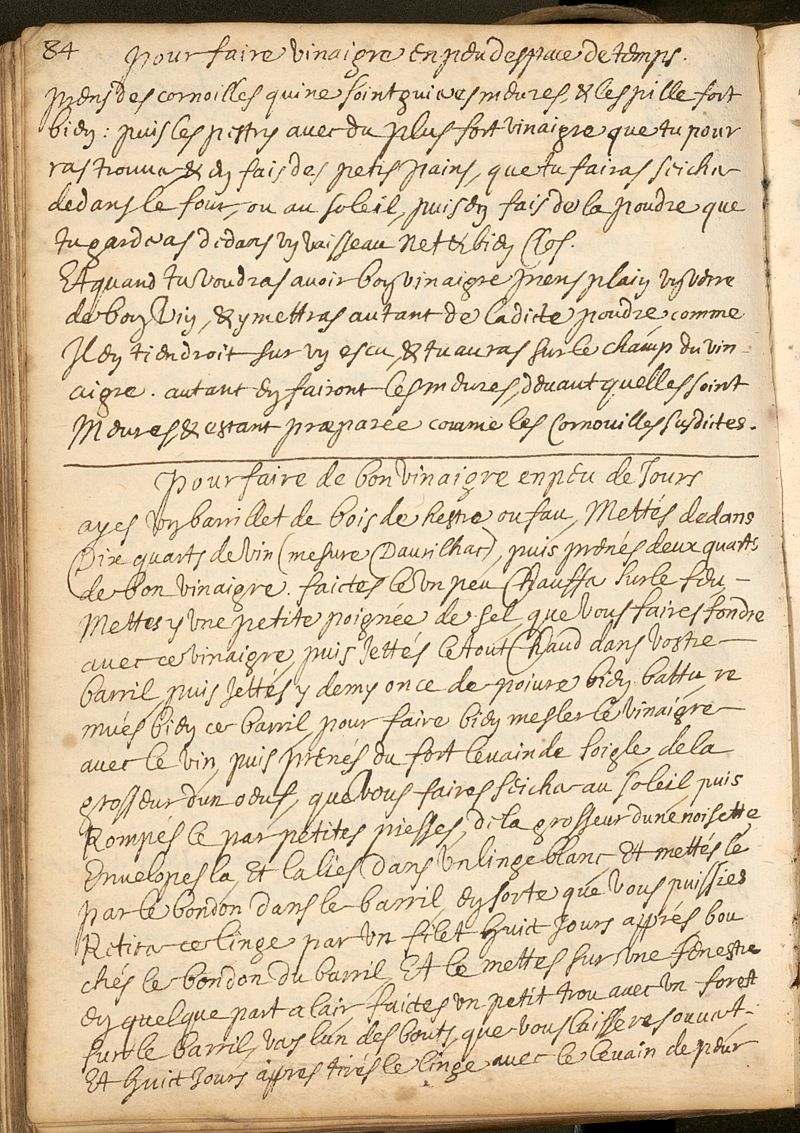 84
Pour faire vinaigre en peu despace de temps.
Prens des cornoilles qui ne soint guieres meures, & les pille fort
bien: puis les pestry avec du plus fort vinaigre que tu pour
ras trouver & en fais des petis pains, que tu fairas seicher
dedans le four, ou au soleil, puis en fais de la poudre que
tu garderas dedans un vaisseau net & bien clos.
Et quand tu voudras avoir bon vinaigre prens plain un verre
de bon vin, & y mettras autant de ladicte poudre comme
Il en tiendroit sur un escu, & tu auras sur le champ du vin-
aigre. autant en fairont les meures, devant quelles soint
Meures, & estant præparée comme les Cornouilles susdictes.
Pour faire de bon vinaigre en peu de Jours
ayes un barrillet de bois de hestre ou fau, Mettés dedans
Dix quarts de vin (mesure Daurilhac), puis prenés deux quarts
de bon vinaigre. faictes le un peu Chauffer sur le feu-
Mettes y une petite poignée de sel, que vous faires fondre
avec ce vinaigre, puis Jettés le tout Chaud dans vostre
barril, puis Jettés y demy once de poivre bien battu, re
mués bien ce barril pour faire bien mesler le vinaigre
avec le vin, puis prenes du fort levain de soigle, de la
grosseur dun oeuf, que vous faires seicher au soleil puis
Rompés le par petites piesses, de la grosseur dune noisette
Envelopes la, Et la lies dans un linge blanc Et mettés le
par le bondon dans le barril, en sorte que vous puissies
Retirer ce linge par un filet huict Jours apprés bou
chés le bondon du barril, Et le mettes sur une fenestre
en quelque part a lair, faictes un petit trou avec un forest
sur le barril, vers lun des bouts, que vous laisseres ouvert.
Et huict Jours appres tirés le linge avec le levain de peur